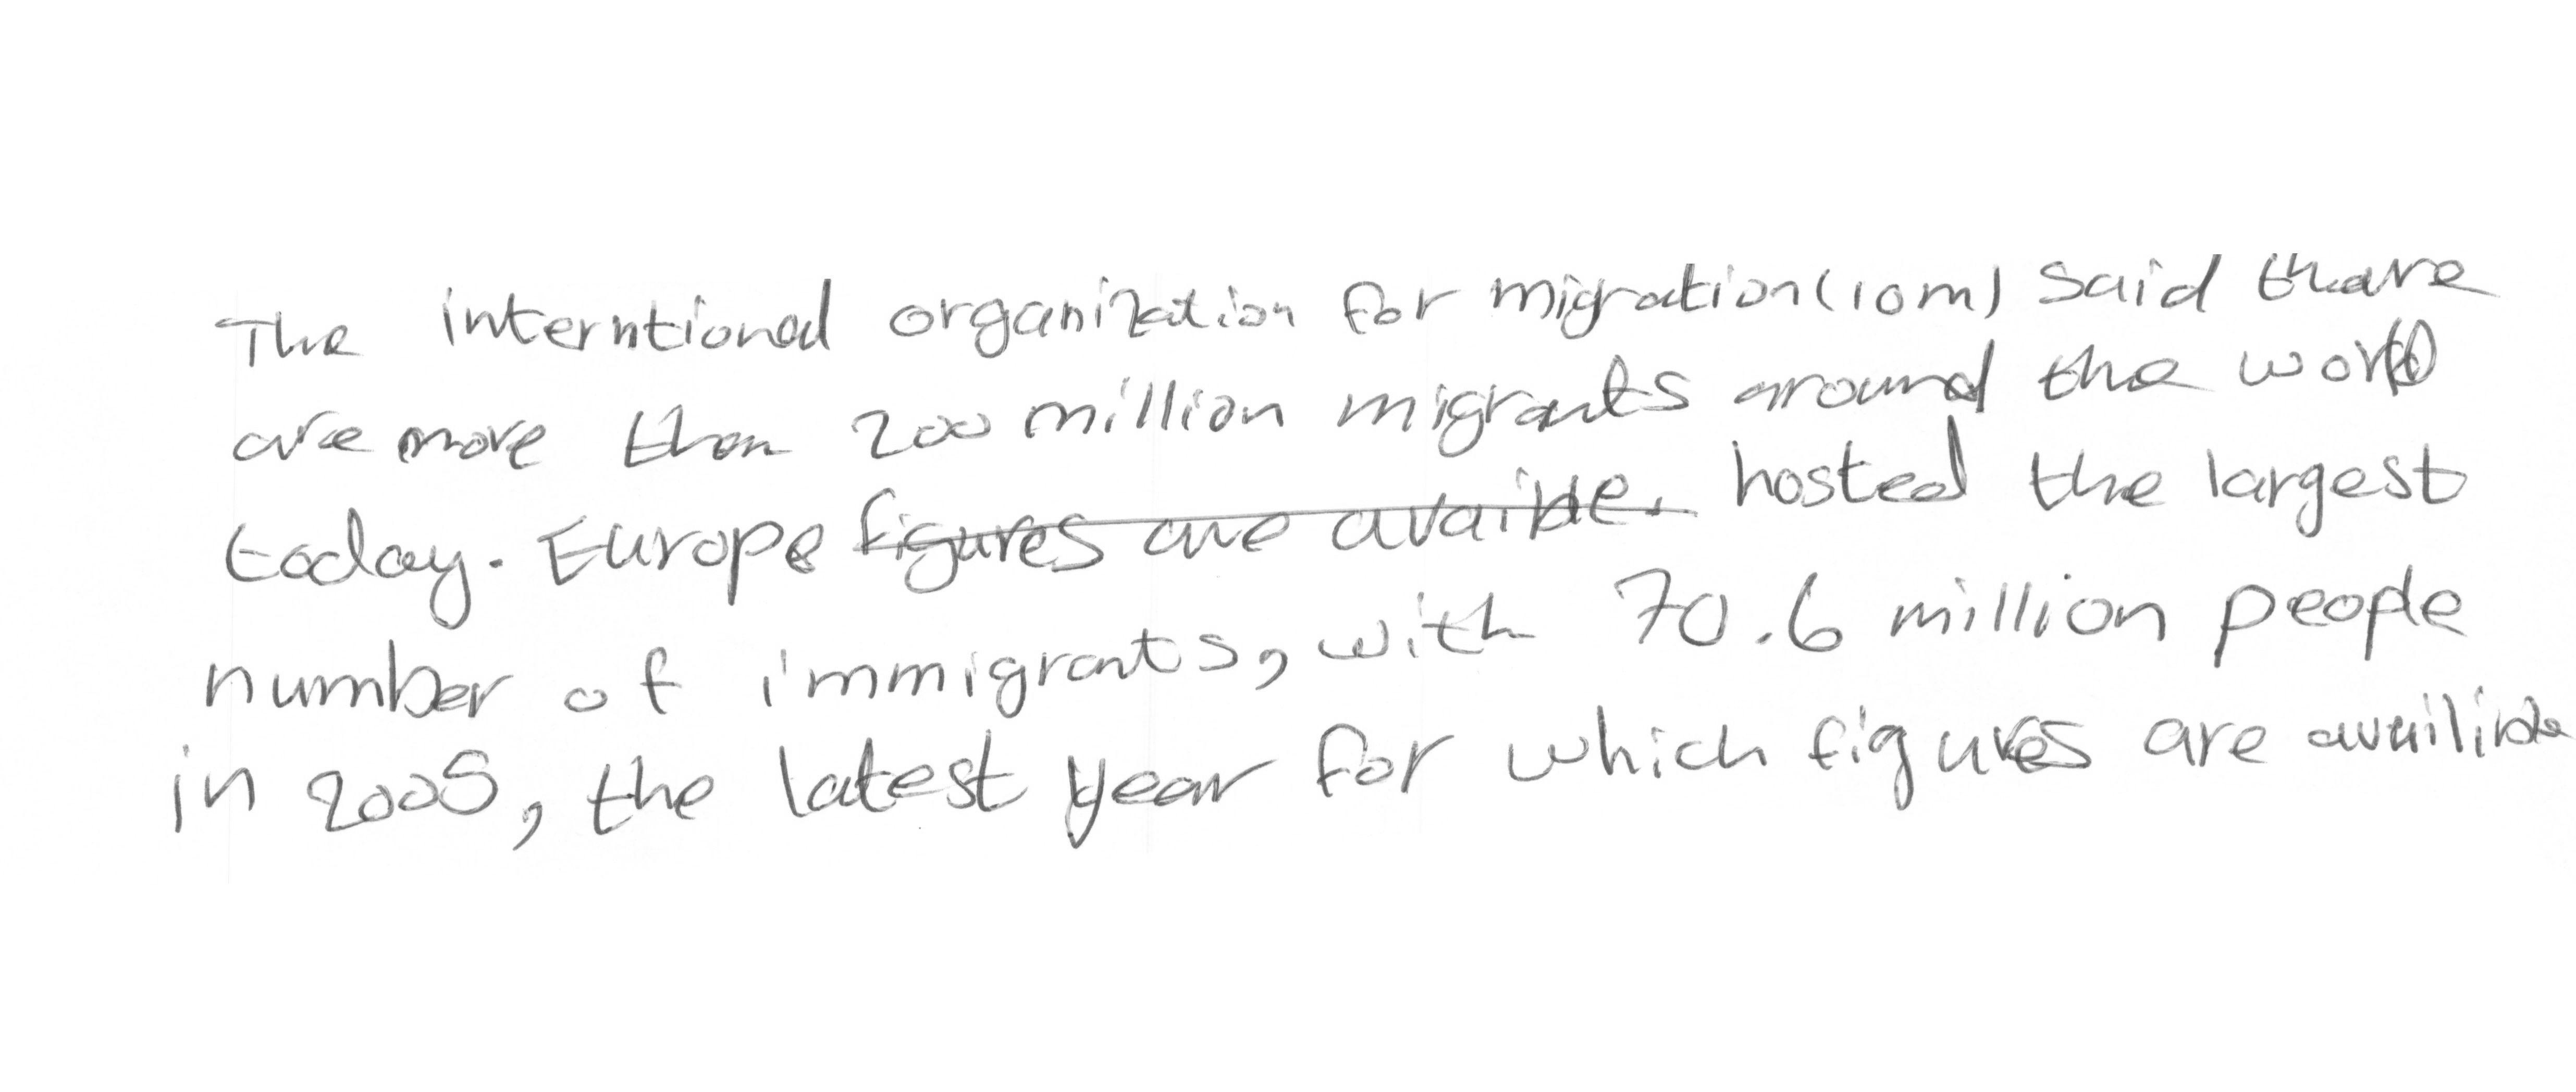 The interntional organization for migration (iom) said thare
are more than 200 million migrants around the world
today. Europe figures are avaible. hosted the largest
number of immigrants, with 70.6 million people
in 2005, the latest year for which figures are availible